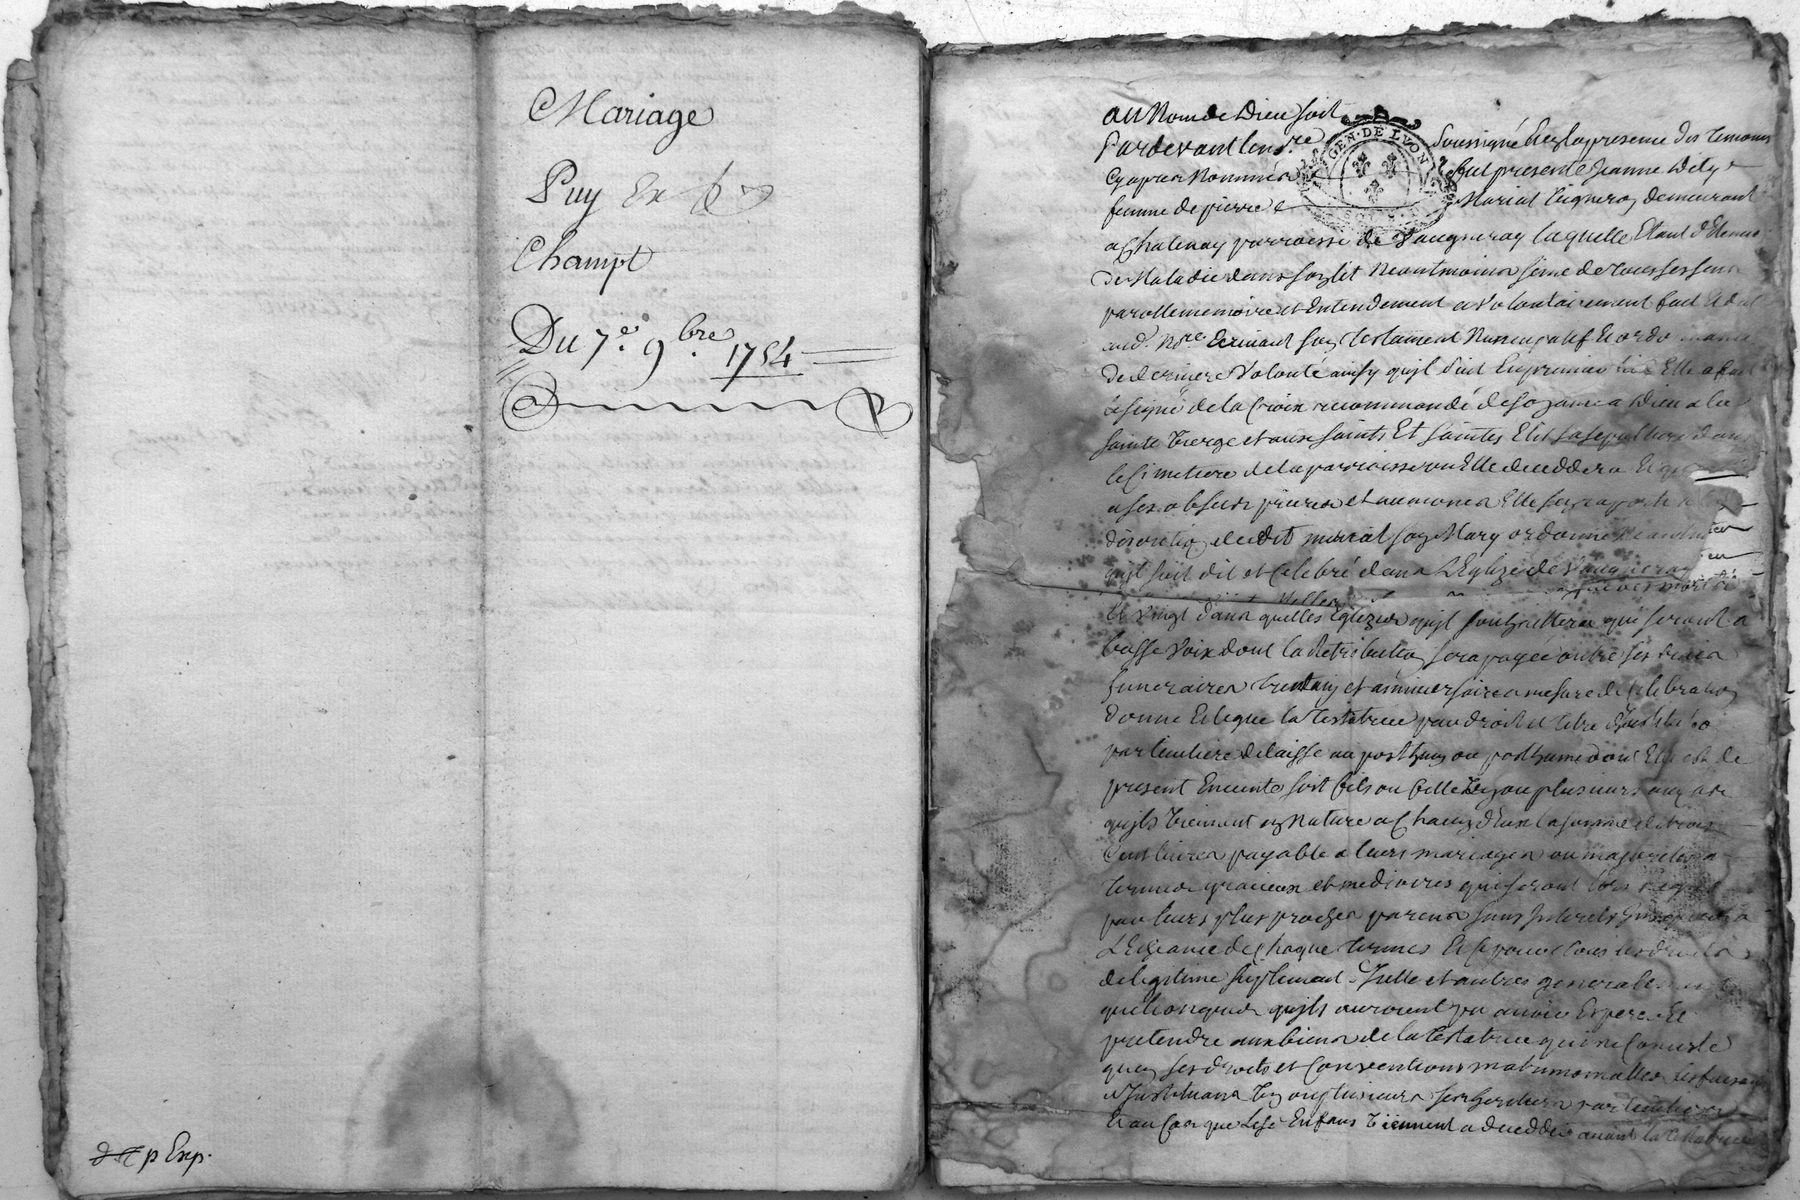 Mariage
Puy Ex
Champt
Du 7e. 9.bre 1754
p Exp.
au Nom de Dieu soit
GEN. DE LYON
Pardevant le no.re soussigné Et En la presence des temoins
Cy apres Nommés fut presente Jeanne
femme de pierre Marial Vigneron demeurant
a Chatenay parroisse de Vaugneray laquelle Etant detenue
De Maladie dans son lit Neantmoins ferme de tous ses sens
parolle memoire et Entendement a volontairement fait Et
aud. No.re Ecrivant son testament Nuncupatif Et ordonnance
de derniere Volonté ainsy quil suit En premier lieu Elle a fait
le signe de la Croix recommandé de son ame a Dieu a la
sainte Vierge et aux saints Et saintes Elit sa sepulture dans
le Cimetiere de la parroisse ou Elle deceddera Et quand
a ses obseques prieres et aumones Elle sen raporte a la
discretion dudit marial son Mary ordonne Neantmoins
quil soit dit et Celebré dans L'Eglize de Vaugneray
Et Vingt dans quelles Eglizes quil souhaittera qui seront a
basse Voix dont la Retribution sera payée outre ses fraix
funeraires et anniversaire a mesure de Celebration
donne Et legue la testatrice par droit et titre d'Institution
particuliere delaisse au posthume ou posthume dont Elle est de
present Enceinte soit fils ou fille Un ou plusieurs
quils Viennent en Nature a Chacun d'Eux la somme de trois
Cent livres payable a leurs mariages ou majorité a
termes gracieux et mediocres qui seront lors reglés
par leurs plus proches parens sans Interets
L'Echeance de Chaque termes Et ce pour tous les droits
de legitime suplement d'Icelle et autres generalement
quelconques quils auroient pu avoir Esperer Et
pretendre aux biens de la testatrice qui ne Consiste
quen ses droits et Conventions matrimonialles les faisant
Instituans Un ou plusieurs ses heritiers particuliers
Et au Cas que Lesd. Enfans Viennent a decedder avant la testatrice